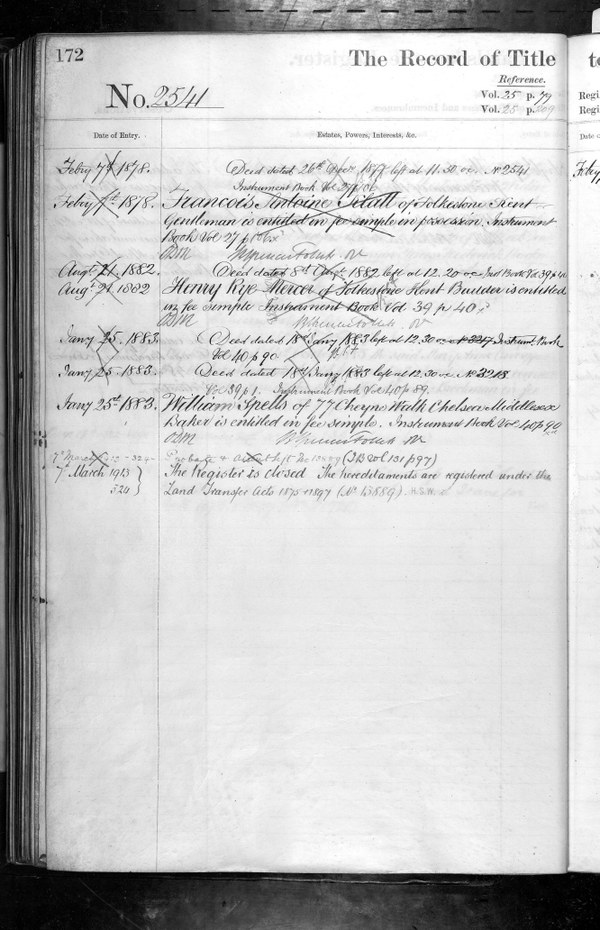 172
The Record of Title
No. 2541
Reference.
Vol. 25 p. 79
Vol. 28 p.
Date of Entry.
Estates, Powers, Interests, &c.
Feby 7th 1878. Deed dated 26th 1877 left at 11.30 oc. No 2541
Instrument Book Vol 27 p 106
Feby 7th 1878. Francois Antoine of Folkestone Kent
Gentleman is entitled in fee simple in possession. Instrument
Book Vol 27 p 106
Augt 21. 1882. Deed dated 8th Augt 1882 left at 12.20 oc Inst Book Vol 39 p 40
Augt 21. 1882 Henry Kye Mercer of Folkestone Kent Builder is entitled
in fee simple Instrument Book Vol 39 p 40
Jany 25. 1883. Deed dated 18th Jany 1883 left at 12.30 oc No 3217 Instrumt. Book
Vol 40 p 90
Jany 25. 1883. Deed dated 18th Jany 1883 left at 12.30 oc No 3218
Vol 39 p 1. Instrument Book Vol 40 p 89.
Jany 25th 1883. William Spells of 77 Cheyne Walk Chelsea Middlesex
Baker is entitled in fee simple. Instrument Book Vol 40 p 90
7th March Probate & left No (I B Vol 131 p 97)
7th March 1913 The Register is closed The hereditaments are registered under the
324 Land Transfer Acts 1875 & 1897 (No 158891). H.S.W.
to
Regi
Regi
Date o
Feby